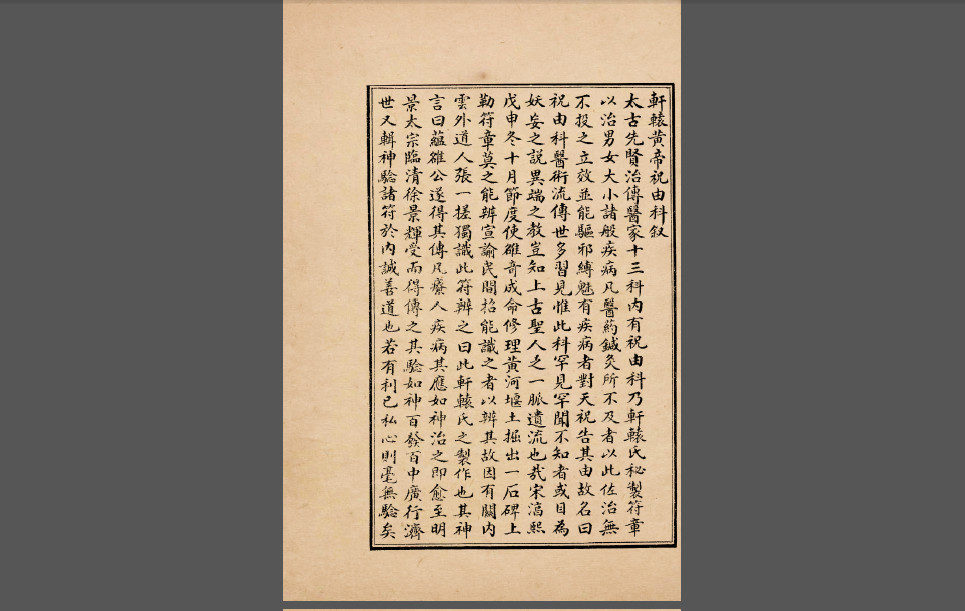 軒轅黃帝祝由科叙
太古先賢治傳醫家十三科內有祝由科乃軒轅氏秘製符章
以治男女大小諸般疾病凡醫葯鍼灸所不及者以此佐治無
不投之立效並能驅邪縛魅有疾病者對天祝告其由故名曰
祝由科醫術流傳世多習見惟此科罕見罕聞不知者或目為
妖妄之說異端之教豈知上古聖人之一脈遺流也哉宋淳熙
戊申冬十月節度使雒奇成命修理黃河堰土掘出一石碑上
勒符章莫之能辨宣諭民間招能識之者以辨其故因有闕內
雲外道人張一搓獨識此符辨之曰此軒轅氏之製作也其神
言曰蘊雒公遂得其傳凡療人疾病其應如神治之即愈至明
景太宗臨清徐景輝受而得傳之其驗如神百發百中廣行濟
世又輯神驗諸符於內誠善道也若有利己私心則毫無驗矣